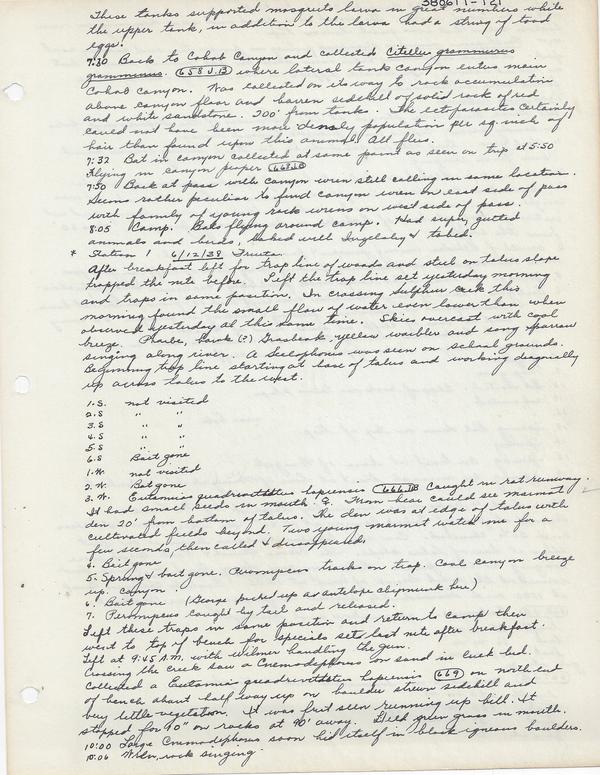 380611-12]
These tanks supported mosquito larva in great numbers while
the upper tank, in addition to the larva had a string of toad
eggs.
7:30 Back to Cohab Canyon and collected Citellus grammurus
grammurus. (658 J.B) where lateral tank canyon enters main
Cohab Canyon. Was collected on its way to rock accumulation
above canyon floor and barren sidehill of solid rock of red
and white sandstone. 200' from tanks. The ectoparasites certainly
could not have been more densly population per sq. inch of
hair than found upon this animal. All flies.
7:32 Bat in canyon collected at same point as seen on trip at 5:50
flying in canyon proper
7:50 Back at pass with Canyon wren still calling in same location.
Seems rather peculiar to find canyon wren on east side of pass
with family of young rock wrens on west side of pass.
8:05 Camp. Bats flying around camp. Had super, gutted
animals and birds, talked with & to bed.
* Station 1 6/12/38 Fruita
After breakfast left for trap line of woods and steel on talus slope
trapped the nite before. Left the trap line set yesterday morning
and traps in same position. In crossing Sulphur Creek this
morning found the small flow of water even lower than when
observed yesterday at this same time. Skies overcast with cool
breeze. Phoebe, hawk (?) Grosbeak, yellow warbler and song sparrow
singing along river. A Sceloporus was seen on school grounds.
Beginning trap line starting at base of talus and working diagonally
up across talus to the west.
1. S. not visited
2. S " "
3. S " "
4. S " "
5. S " "
6. S Bait gone
1. W. not visited
2. W. Bait gone
3. W. Eutamias quadrivittatus hopiensis (666 J.B) Caught in rat runway.
It had small seeds in mouth. ♀. From here could see marmot
den 20' from bottom of talus. The den was at edge of talus with
cultivated fields beyond. Two young marmot watch me for a
few seconds then called & disappeared.
4. Bait gone
5. Sprung & bait gone. Peromyscus tracks on trap. Cool canyon breeze
up canyon.
6. Bait gone (George picked up as antelope chipmunk here)
7. Peromyscus caught by tail and released.
Left these traps in same position and return to camp then
went to top of bench for specials sets last nite after breakfast.
Left at 9:45 A.M. with Wilmer handling the gun.
Crossing the creek saw a Cnemodophorus on sand in creek bed.
Collected a Eutamias quadrivittatus hopiensis (669) on north end
of bench about half way up on boulder strewn sidehill and
very little vegetation. It was first seen running up hill. It
stopped for 90" on rocks at 90' away. Had green grass in mouth.
10:00 Large Cnemodophorus soon hid itself in black igneous boulders.
10:06 Wren, rock singing.